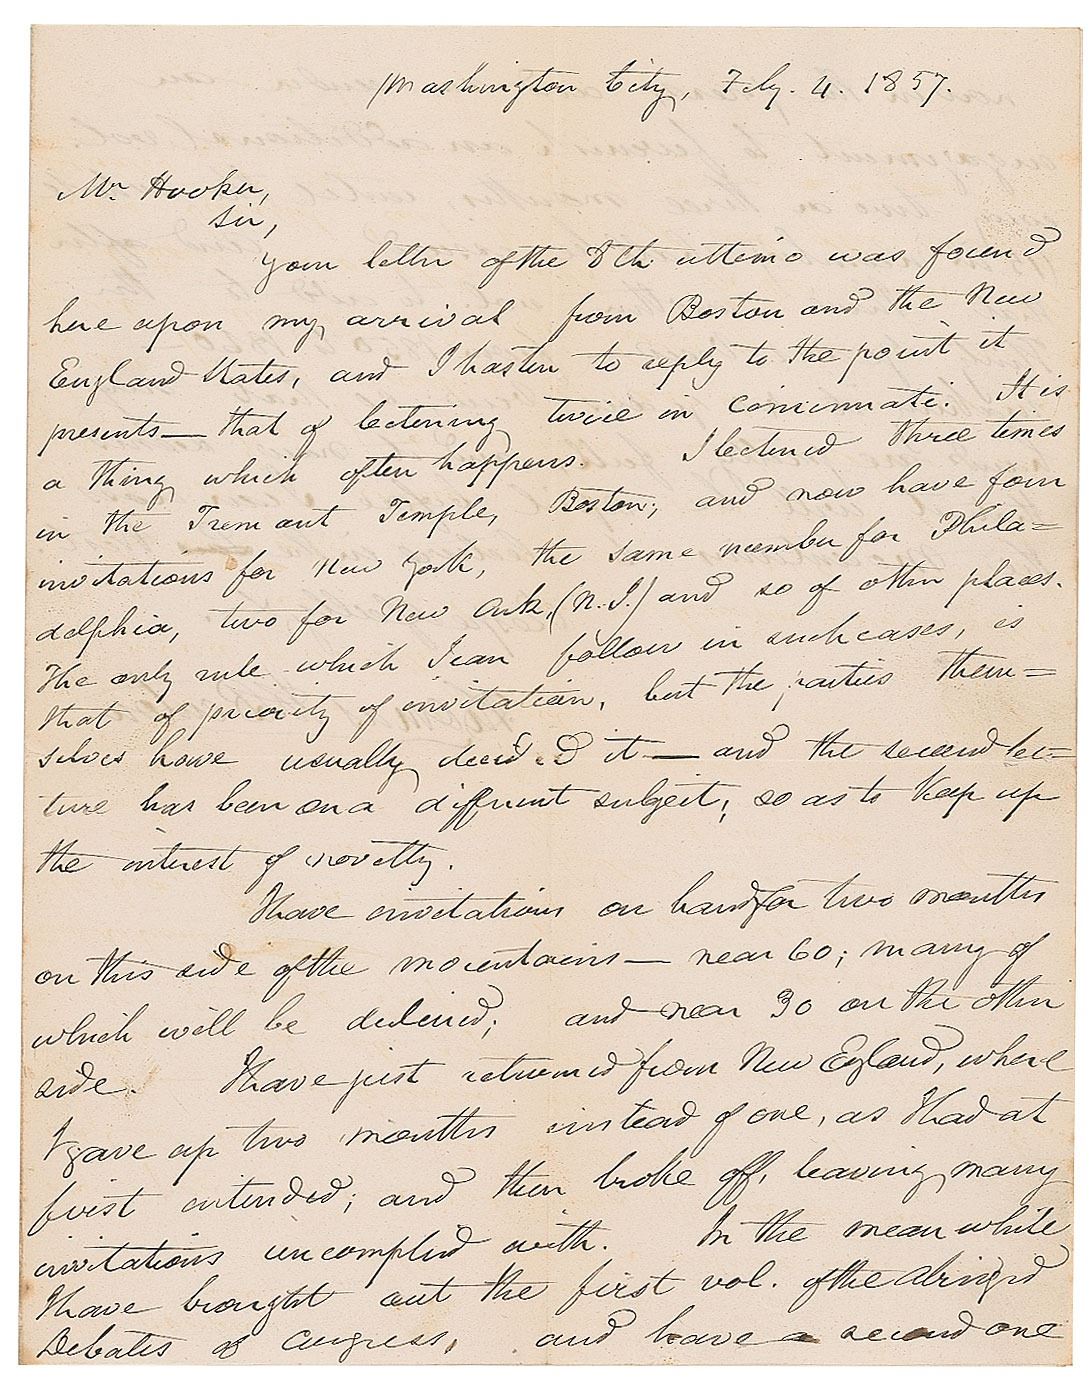 Washington City, Feby. 4. 1857.
Mr. Hooker,
Sir,
Your letter of the 8th. ultimo was found
here upon my arrival from Boston and the New
England States, and I hasten to reply to the point it
presents — that of lecturing twice in Concinnati. It is
a thing which often happens. I lectured three times
in the Tremont Temple, Boston; and now have four
invitations for New York, the same number for Phila=
delphia, two for New Ark, (N. J.) and so of other places.
The only rule which I can follow in such cases, is
that of priority of invitation, but the parties them=
selves have usually decided it — and the second lec-
ture has been on a different subject; so as to keep up
the interest of novelty.
I have invitations on hand for two months
on this side of the mountains — near 60; many of
which will be declined; and near 30 on the other
side. I have just returned from New England, where
I gave up two months instead of one, as I had at
first intended; and then broke off, leaving many
invitations uncomplied with. In the mean while
I have brought out the first vol. of the abriged
Debates of Congress, and have a second one